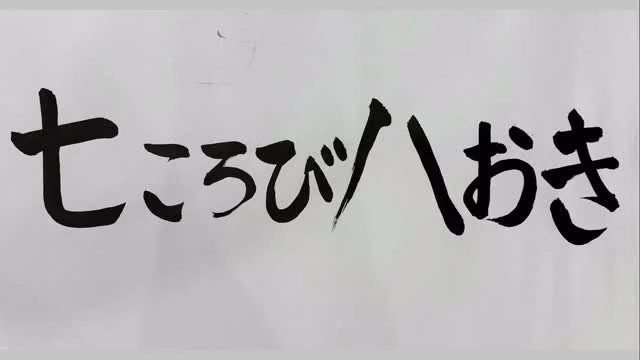 七ころび八おき